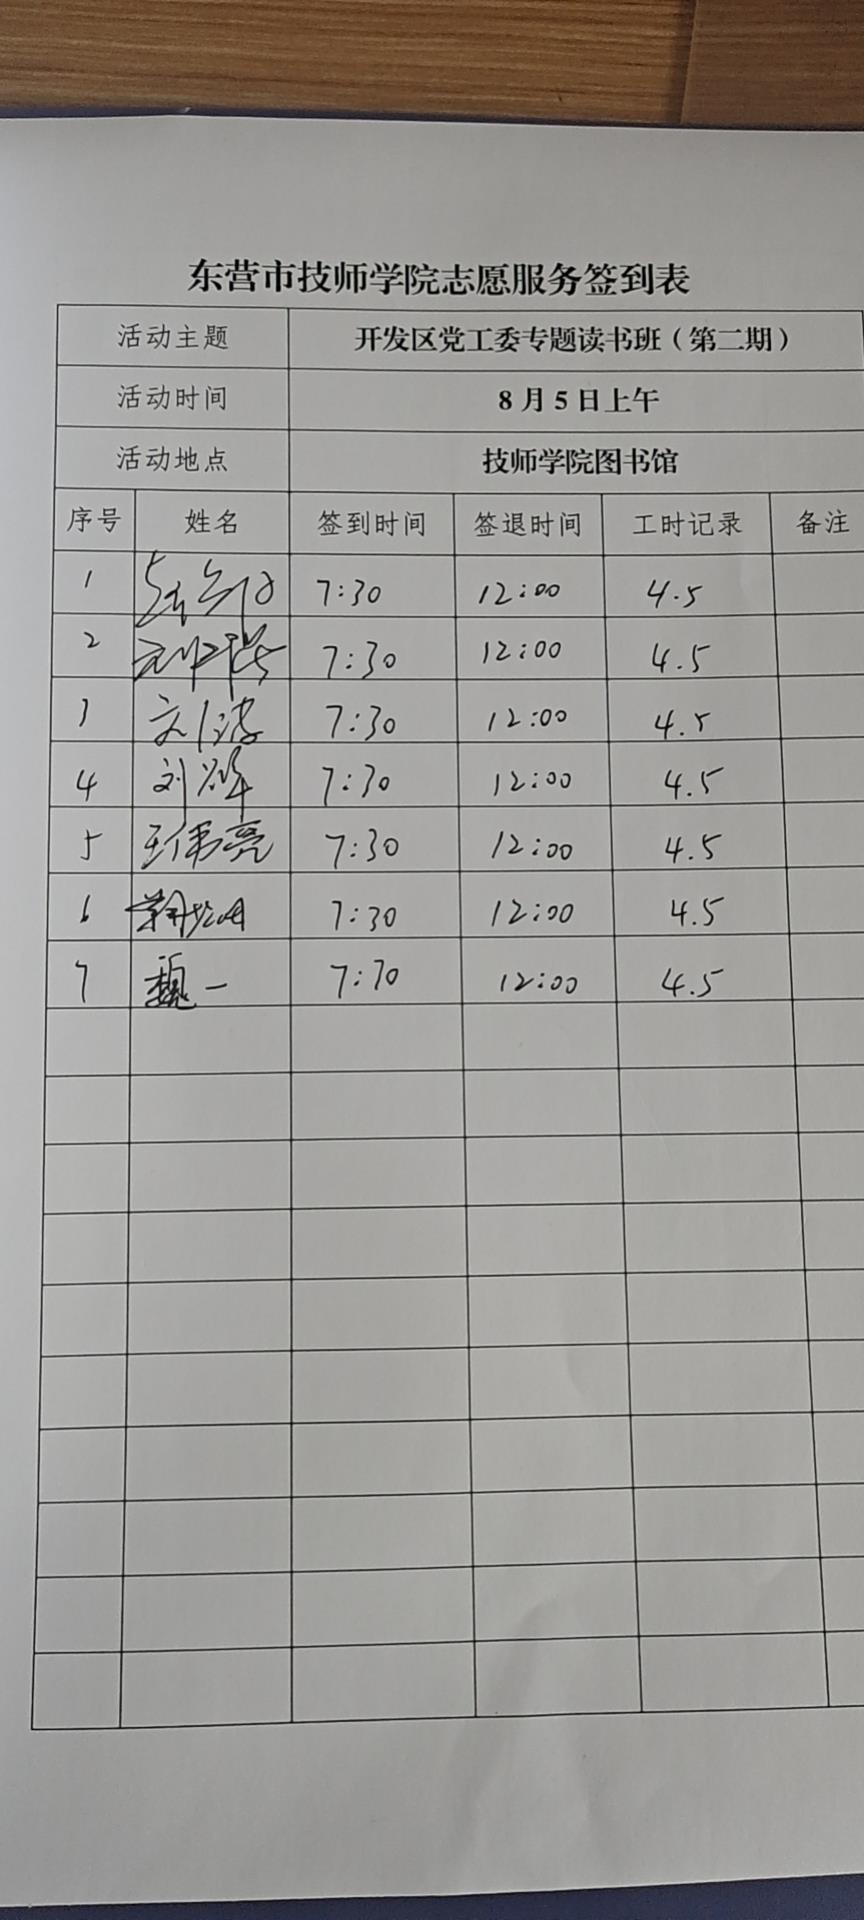 东营市技师学院志愿服务签到表
活动主题 开发区党工委专题读书班（第二期）
活动时间 8月5日上午
活动地点 技师学院图书馆
序号 姓名 签到时间 签退时间 工时记录 备注
1 7:30 12:00 4.5
2 7:30 12:00 4.5
3 7:30 12:00 4.5
4 刘 7:30 12:00 4.5
5 王伟亮 7:30 12:00 4.5
6 7:30 12:00 4.5
7 魏一 7:30 12:00 4.5